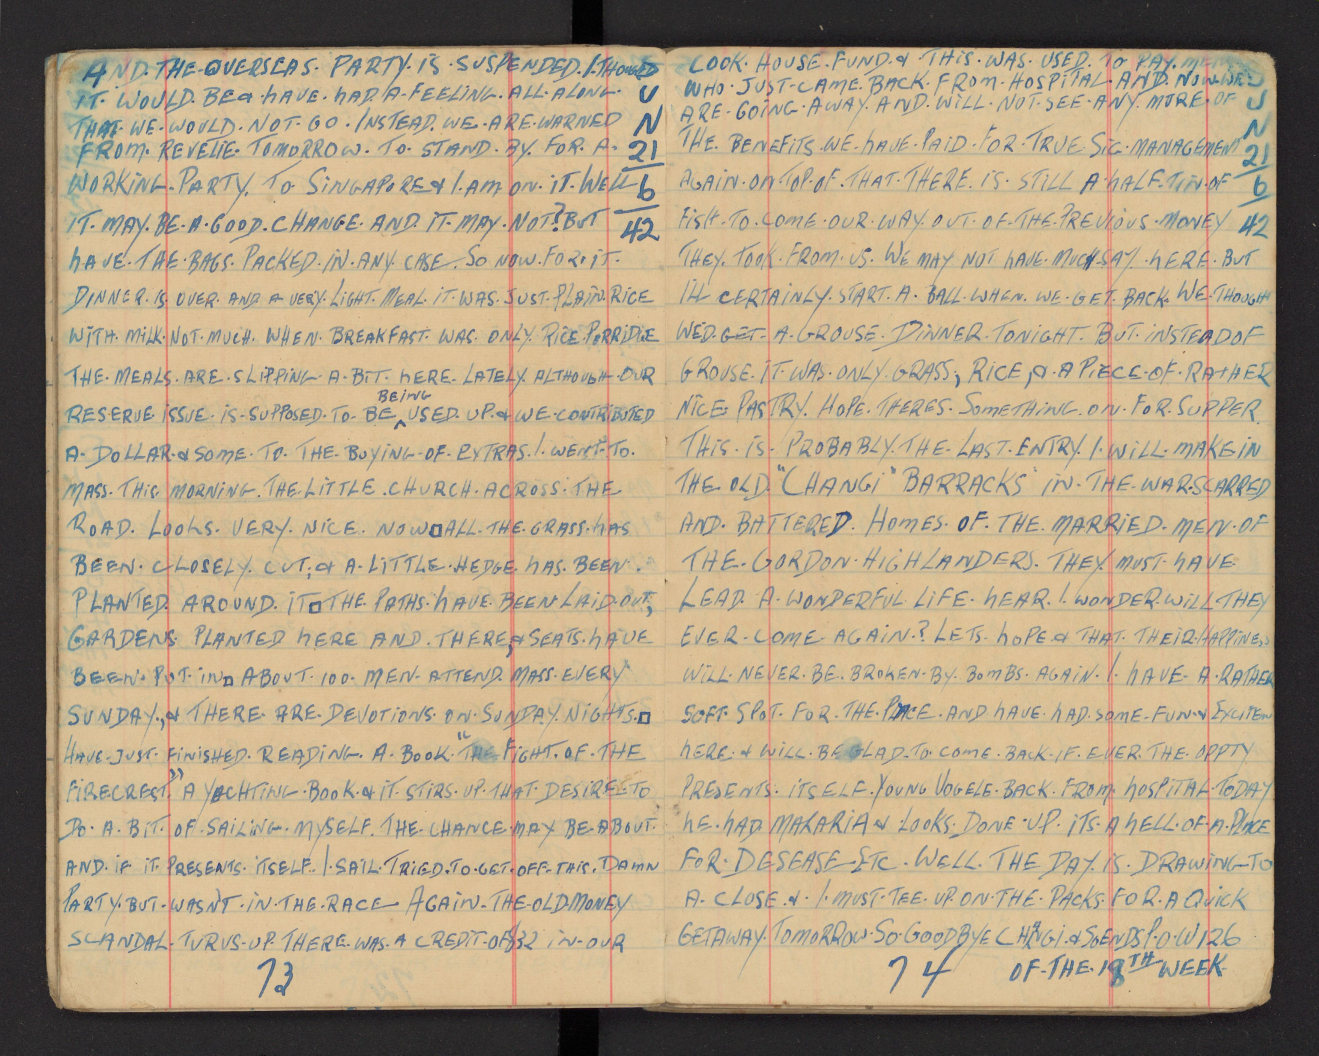 AND. THE. OVERSEAS. PARTY. IS. SUSPENDED. I. THOUGHT
IT. WOULD. BE & HAVE. HAD. A. FEELING. ALL. ALONG.
THAT. WE. WOULD. NOT. GO. INSTEAD. WE. ARE. WARNED
FROM. REVELIE. TOMORROW. TO. STAND. BY. FOR. A.
WORKING. PARTY. TO SINGAPORE & I. AM. ON. IT. WELL
IT. MAY. BE. A. GOOD. CHANGE. AND. IT. MAY. NOT? BUT
HAVE. THE. BAGS. PACKED. IN. ANY. CASE. SO NOW. FOR. IT.
DINNER. IS OVER. AND A VERY. LIGHT. MEAL. IT. WAS. JUST. PLAIN. RICE
WITH. MILK. NOT. MUCH. WHEN. BREAKFAST. WAS. ONLY. RICE. PORRIDGE
THE. MEALS. ARE. SLIPPING. A. BIT. HERE. LATELY. ALTHOUGH. OUR
BEING
RESERVE ISSUE. IS. SUPPOSED. TO. BE ^ USED. UP. & WE. CONTRIBUTED
A. DOLLAR. & SOME. TO. THE. BUYING. OF. EXTRAS. I. WENT. TO.
MASS. THIS MORNING. THE. LITTLE. CHURCH. ACROSS. THE
ROAD. LOOKS. VERY. NICE. NOW ALL. THE. GRASS. HAS
BEEN. CLOSELY. CUT, & A. LITTLE. HEDGE. HAS. BEEN.
PLANTED. AROUND. IT THE. PATHS. HAVE. BEEN. LAID. OUT,
GARDENS. PLANTED HERE AND. THERE, & SEATS. HAVE
BEEN. PUT. IN ABOUT. 100. MEN. ATTEND. MASS. EVERY
SUNDAY, & THERE. ARE. DEVOTIONS. ON. SUNDAY. NIGHTS.
HAVE. JUST. FINISHED. READING. A. BOOK. "THE FIGHT. OF. THE
FIRECREST." A YACHTING. BOOK. & IT. STIRS. UP. THAT. DESIRE. TO
DO. A. BIT. OF. SAILING. MYSELF. THE. CHANCE. MAY BE. ABOUT.
AND. IF IT. PRESENTS. ITSELF. I. SAIL. TRIED. TO. GET. OFF. THIS. DAMN
PARTY. BUT. WASN'T. IN. THE. RACE. AGAIN. THE. OLD. MONEY
SCANDAL. TURUS. UP. THERE. WAS. A CREDIT. OF $32 IN. OUR
73
U
N
21
6
42
COOK. HOUSE. FUND. & THIS. WAS. USED. TO PAY. MEN
WHO. JUST. CAME. BACK. FROM. HOSPITAL. AND. NOW. WE
ARE. GOING. AWAY. AND. WILL. NOT. SEE. ANY. MORE. OF
THE. BENEFITS. WE. HAVE. PAID. FOR. TRUE. SIG. MANAGEMENT
AGAIN. ON. TOP. OF. THAT. THERE. IS. STILL A. HALF. TIN. OF
FISH. TO. COME. OUR. WAY. OUT. OF. THE. PREVIOUS. MONEY
THEY. TOOK. FROM. US. WE MAY NOT HAVE. MUCH SAY. HERE. BUT
I'LL CERTAINLY. START. A. BALL. WHEN. WE. GET. BACK. WE. THOUGHT
WED. GET. A. GROUSE. DINNER. TONIGHT. BUT. INSTEAD OF
GROUSE. IT. WAS. ONLY. GRASS, RICE, & A PIECE. OF. RATHER
NICE. PASTRY. HOPE. THERES. SOMETHING. ON. FOR. SUPPER.
THIS. IS. PROBABLY. THE. LAST. ENTRY. I. WILL. MAKE IN
THE OLD "CHANGI" BARRACKS IN. THE. WAR. SCARRED
AND. BATTERED. HOMES. OF. THE. MARRIED. MEN. OF
THE. GORDON. HIGHLANDERS. THEY. MUST. HAVE
LEAD. A. WONDERFUL. LIFE. HEAR. I. WONDER. WILL. THEY
EVER. COME AGAIN.? LETS. HOPE & THAT. THEIR. HAPPINESS
WILL. NEVER. BE. BROKEN. BY. BOMBS. AGAIN. I. HAVE. A. RATHER
SOFT. SPOT. FOR. THE. PLACE. AND HAVE. HAD. SOME. FUN. & EXCITEM
HERE. & WILL. BE GLAD. TO. COME. BACK. IF. EVER. THE. OPPTY
PRESENTS. ITSELF. YOUNG VOGELE. BACK. FROM. HOSPITAL. TODAY
HE. HAD. MALARIA & LOOKS. DONE. UP. ITS. A HELL. OF. A. PLACE
FOR. DESEASE. ETC. WELL. THE. DAY. IS. DRAWING. TO
A. CLOSE. & I. MUST. TEE. UP. ON. THE. PACKS. FOR. A QUICK
GETAWAY. TOMORROW. SO. GOODBYE CHANGI. & SO ENDS P.O.W 126
OF. THE. 18TH WEEK.
74
U
N
21
6
42